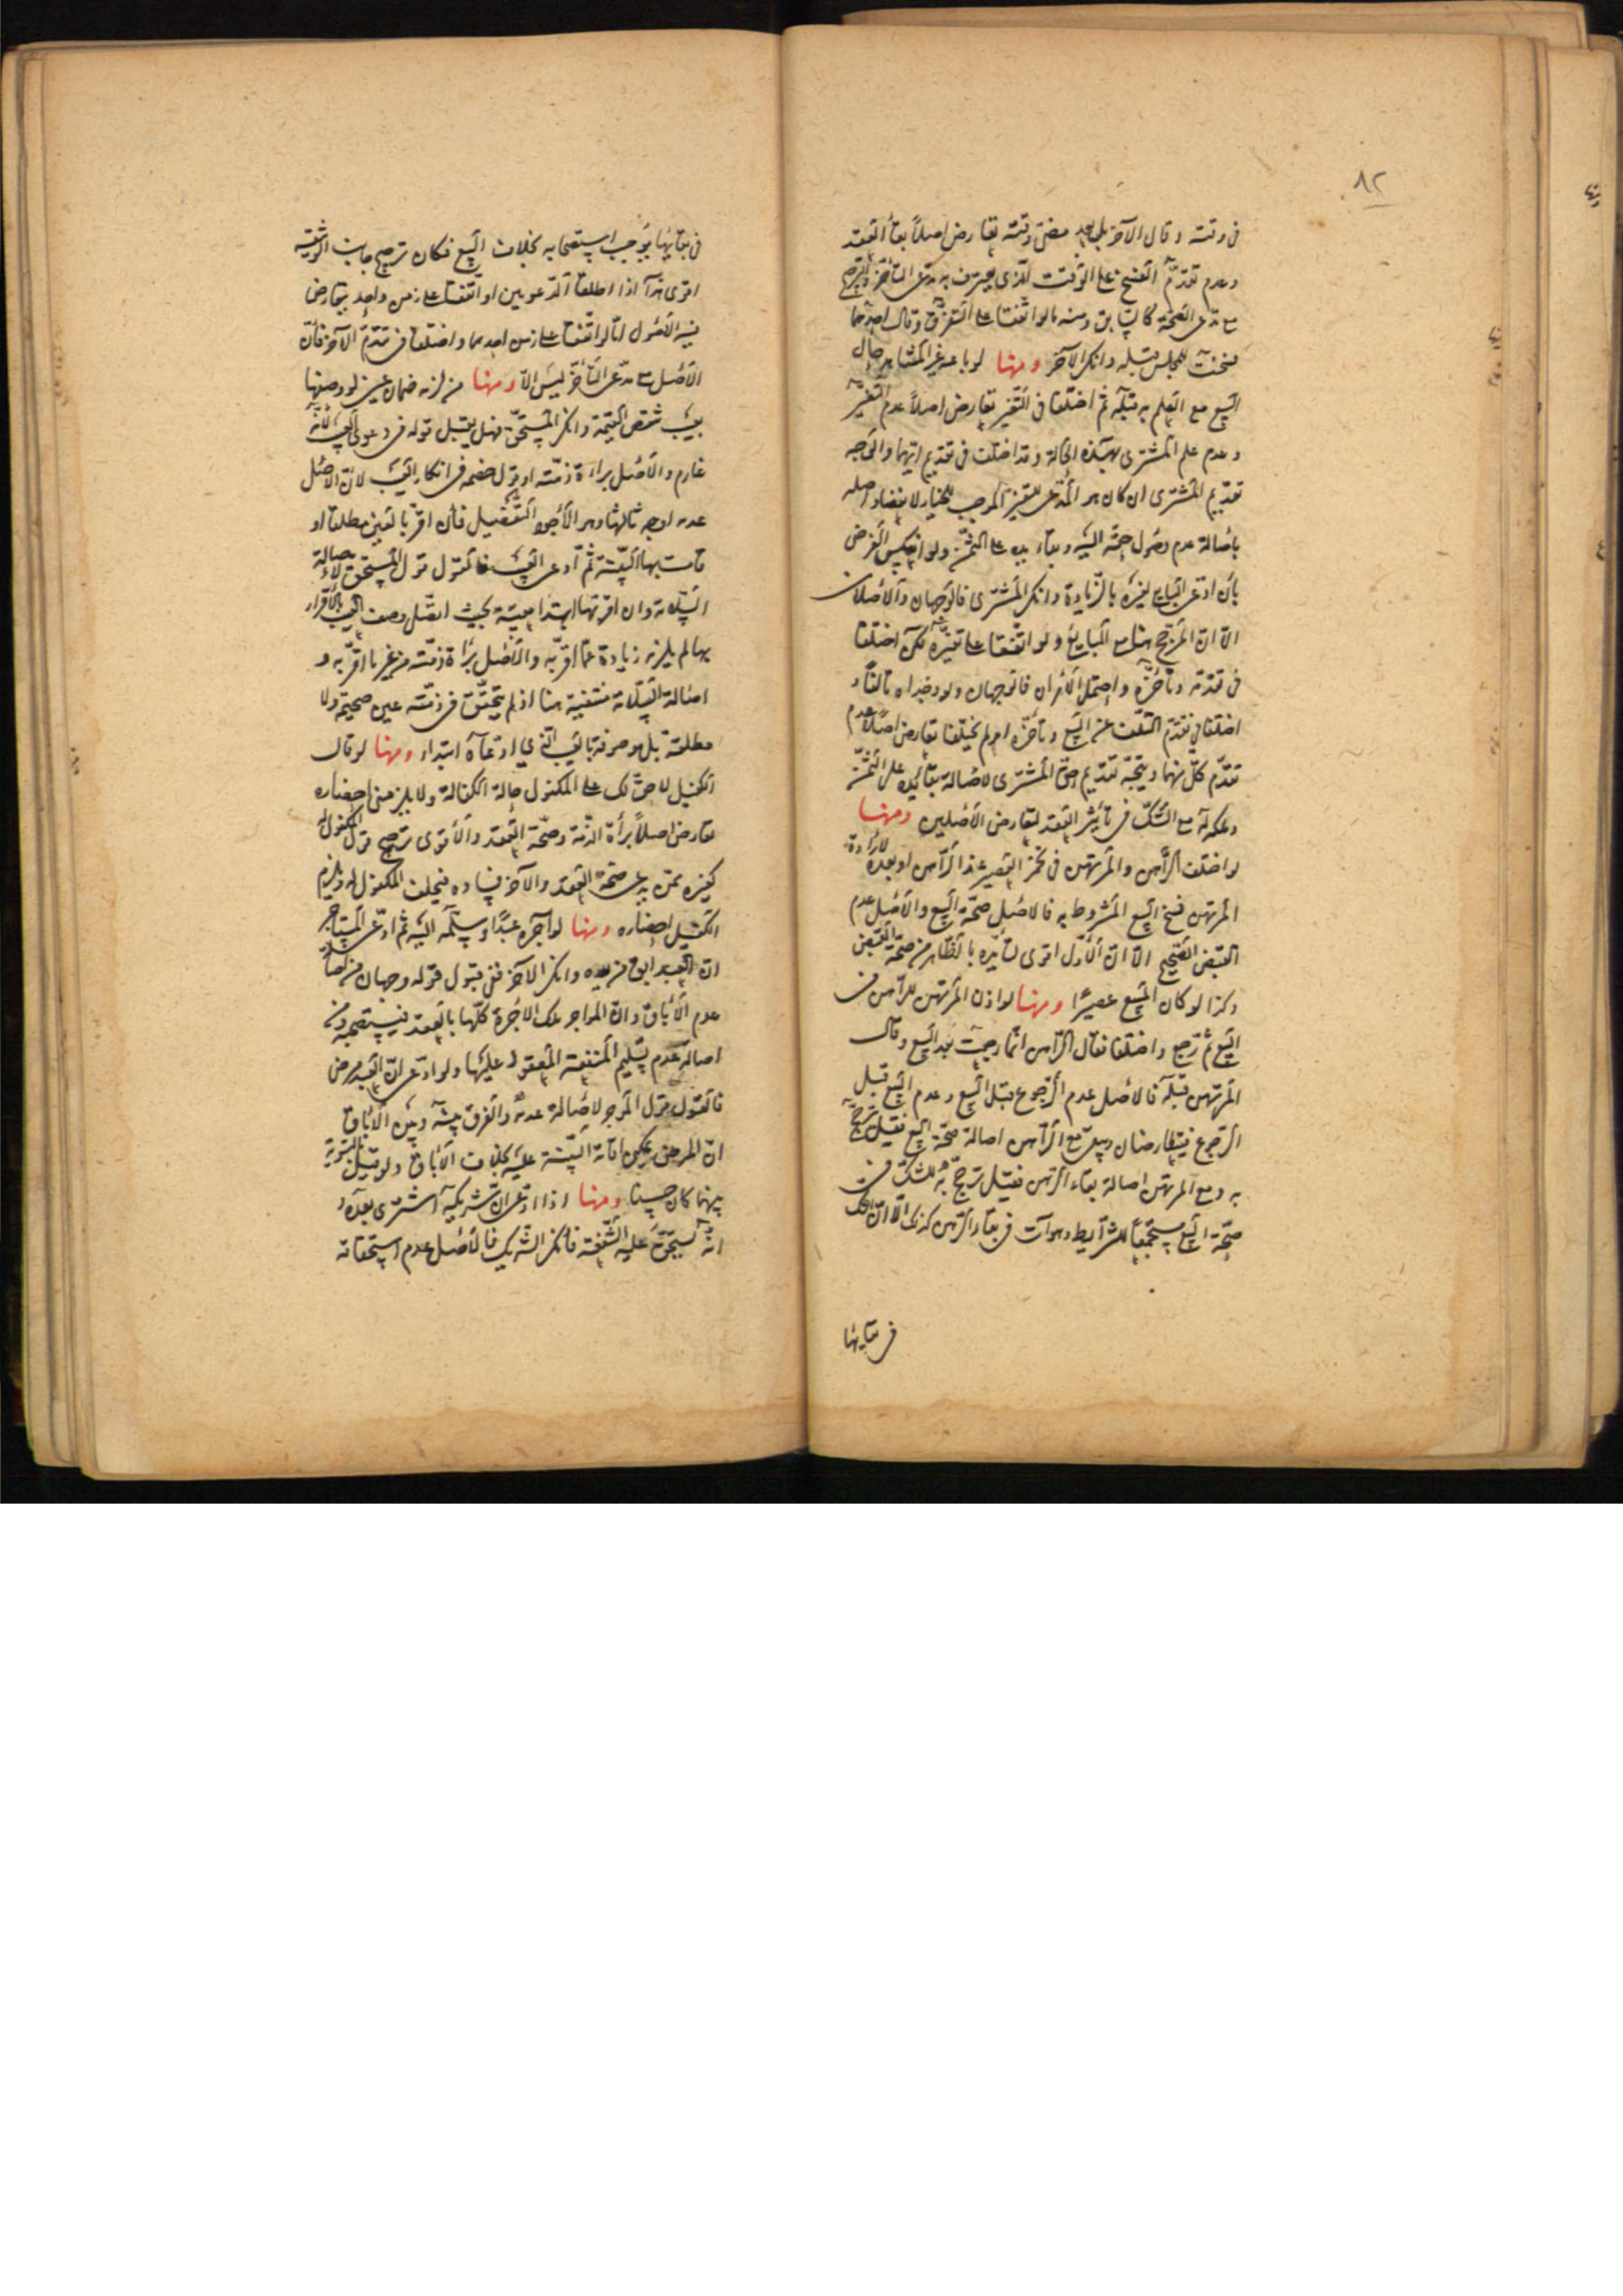 ٨٢
فى وقته وقال الآخر بل بعد مضىّ وقته تعارض اصلا بقاء العقد
وعدم تقدّم الفسخ على الوقت الذى يعترف به مدّعى التأخّر والترجيح
مع مدّعى الصحّة كالسابق ومنه ما لو اتفقا على التفرّق وقال احدهما
فسخت المجلس قبله وانكر الآخر ومنها لو باعه غير المشاهد حال
البيع مع العلم به قبله ثم اختلفا فى التغير تعارض اصلا عدم التغيّر
وعدم علم المشترى بهذه الحالة وقد اختلف فى تقديم ايّهما والوجه
تقديم المشترى ان كان هو المدّعى للتغير الموجب للخيار لاعتضاد اصله
باصالة عدم وصول حقّه اليه وبقاء يده على الثمن ولو انعكس الفرض
بأن ادّعى البايع تغيّره بالزّيادة وانكر المشترى فالوجهان والاصلان
الّا انّ المرجّح هنا مع البايع ولو اتّفقا على تغيّره لكن اختلفا
فى تقدّمه وتأخّره واحتمل الأمران فالوجهان ولو وجداه تالفا و
اختلفا فى تقدّم التلف عن البيع وتأخّره او لم يختلفا تعارض اصلا عدم
تقدّم كلّ منهما ويتّجه تقديم حقّ المشترى لاصالة بقاء يده على الثمن
وملكه له مع الشكّ فى تأثير العقد لتعارض الأصلين ومنها
لو اختلف الرّاهن والمرتهن فى تخمّر العصير عند الرّاهن او بعده لارادة
المرتهن فسخ البيع المشروط به فالاصل صحّة البيع والأصل عدم
القبض الصّحيح الّا انّ الأوّل اقوى لتأيّده بالظّاهر من صحّة القبض
وكذا لو كان المبيع عصيرًا ومنها لو اذن المرتهن للرّاهن فى
البيع ثم رجع واختلفا فقال الرّاهن انّما رجعت بعد البيع وقال
المرتهن قبله فالاصل عدم الرّجوع قبل البيع وعدم البيع قبل
الرّجوع فيتعارضان ويبقى مع الرّاهن اصالة صحّة البيع فقيل ترجّح
به ومع المرتهن اصالة بقاء الرّهن فقيل ترجّح به للشكّ فى
صحّة البيع مستجمعًا للشرّايط وهو آت فى بقاء الرّهن كذلك الّا انّ الشك
فى بقايها
فى بقايها يوجب استصحابه بخلاف البيع فكان ترجيح جانب الوثيقة
اقوى هذا اذا اطلقا الدّعويين او اتّفقا على زمن واحد بتعارض
فيه الأصول امّا لو اتّفقا على زمن احدهما واختلفا فى تقدّم الآخر فانّ
الأصل مع مدّعى التأخّر ليس الّا ومنها من لزمه ضمان عين لو وصفها
بعيب ينقص القيمة وانكر المستحقّ فهل يقبل قوله فى دعوى العيب لأنّه
غارم والأصل براءة ذمّته او قول خصمه فى انكار العيب لأنّ الاصل
عدمه اوجه ثالثها وهو الأجود التّفصيل فأن اقرّ بالعين مطلقا او
قامت بها البيّنة ثمّ ادعى العيب فالقول قول المستحقّ لأصالة
السّلامة وان اقرّ بها ابتداء معيبة بحيث اتّصل وصف العيب بالأقرار
بها لم يلزمه زيادة عمّا اقرّ به والأصل براءة ذمّته من غير ما اقرّ به و
اصالة السّلامة منتفية هنا اذ لم يتحقّق فى ذمّته عين صحيحة ولا
مطلقة بل موصوفة بالعيب الّذى ادّعاه ابتداء ومنها لو قال
الكفيل لا حقّ لك على المكفول حالة الكفالة ولا يلزمنى احضاره
تعارض اصلا براءة الذّمة وصحّة العقد والأقوى ترجيح قول المكفول له
كغيره ممّن يدعى صحّة العقد والآخر فساده فيحلف المكفول له ويلزم
الكفيل احضاره ومنها لو آجره عبدًا وسلّمه اليه ثم ادّعى المستأجر
انّ العبد ابق من يده وانكر الآخر ففى قبول قوله وجهان من اصالة
عدم الأباق وانّ المواجر ملك الاجرة كلّها بالعقد فيستصحبه ومن
اصالة عدم تسليم المنفعة المعقود عليها ولو ادّعى انّ العبد مرض
فالقول قول المؤجر لاصالة عدمه والفرق بينه وبين الأباق
انّ المرض يمكن اقامة البيّنة عليه بخلاف الأباق ولو قيل بالتسوية
بينهما كان حسنا ومنها اذا ادّعى انّ شريكه اشترى بعده و
انّه يستحقّ عليه الشّفعة فأنكر الشّريك فالأصل عدم استحقاقه